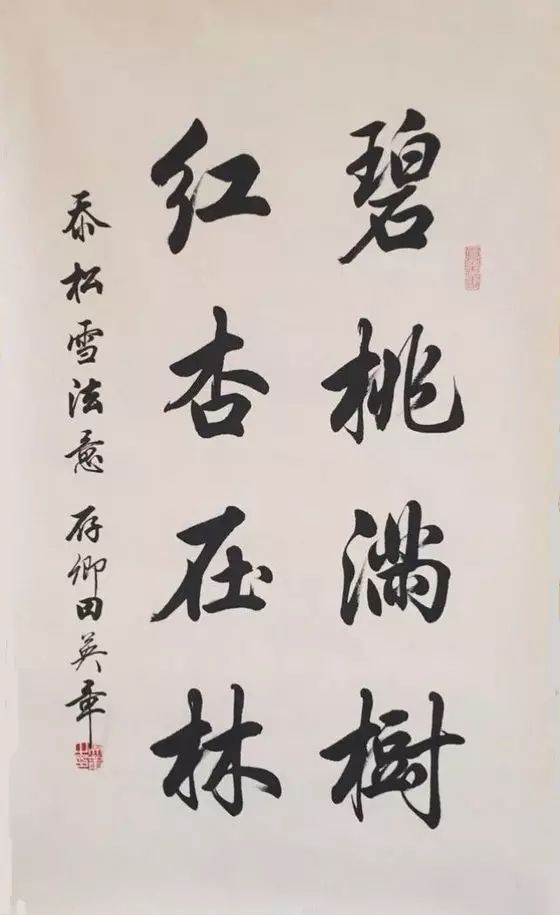 碧桃满樹
红杏在林
参松雪法意 存卿田英章